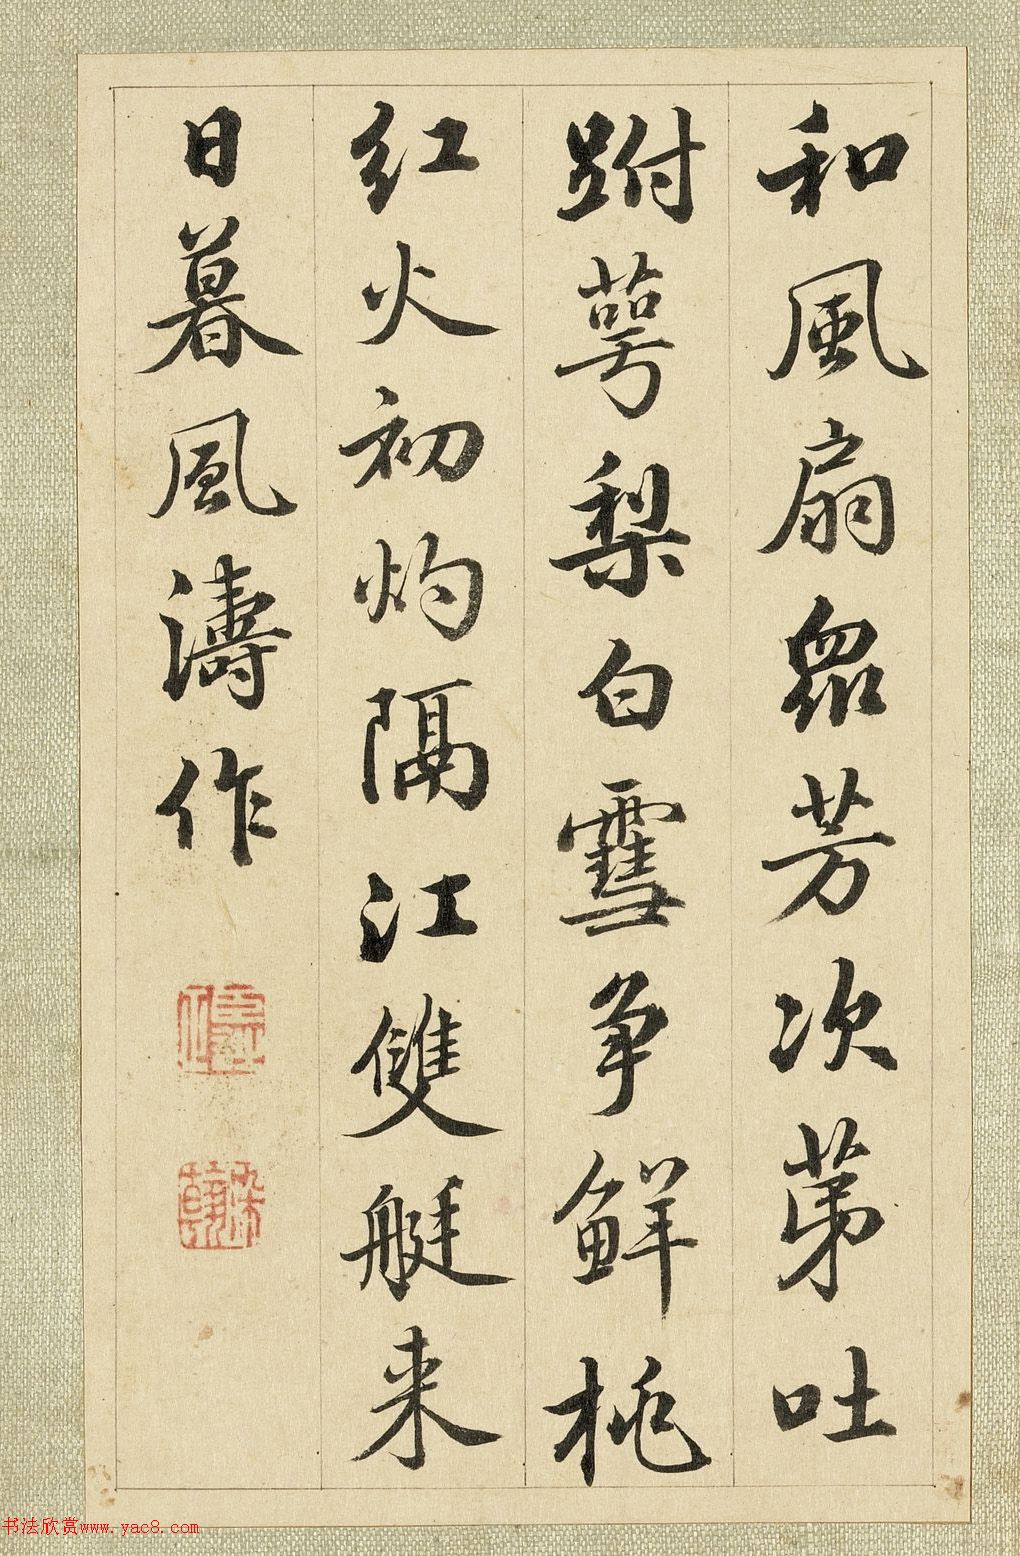 和風扇眾芳次苐吐
跗萼梨白雪争鮮桃
红火初灼隔江雙艇来
日暮風濤作
书法欣赏www.yac8.com